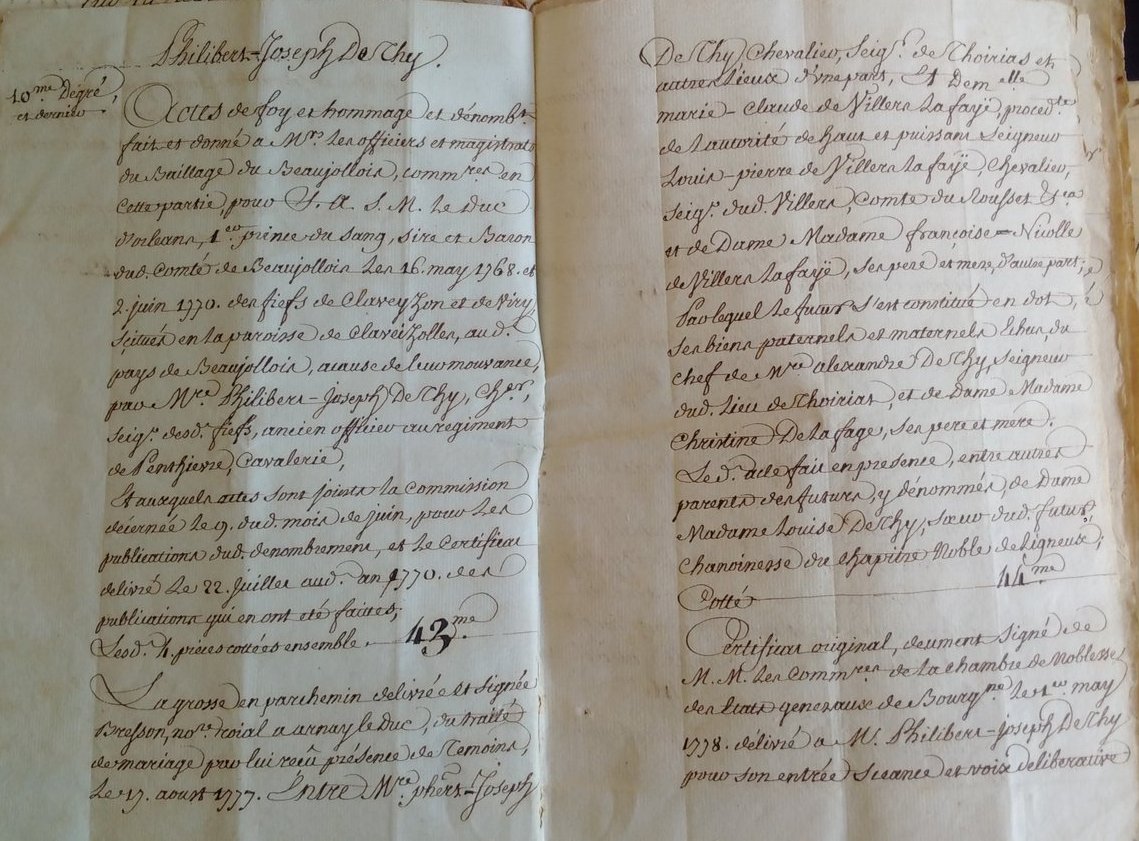 Philibert=Joseph De Thy.
10.me Dégré,
et dernier
Actes de foy et hommage et dénombt.
fait et donné a Mrs. les officiers et magistrats
du Baillage du Beaujollois, commres. en
Cette partie, pour S. A. S. M. Le Duc
d'orleans, 1er. prince du sang, sire et Baron
dud. Comté de Beaujollois les 16. may 1768. et
2. juin 1770. des fiefs de Claveyzon et de Viry
scitués en la paroisse de Claveizolles, aud.
pays de Beaujollois, acause de leur mouvance,
par Mre. Philibert-Joseph De Thy, Cher.,
seigr. desd. fiefs, ancien officier au regiment
de Penthievre Cavalerie,
Et auxquels actes sont joints la Commission
décernée le 9. dud. mois de juin, pour les
publications dud. denombrement, et le certificat
délivré le 22. juillet aud. an 1770. des
publications qui en ont été faittes;
Lesd. 4. pièces cottées ensemble. 43me.
La grosse en parchemin délivrée et signée
Bresson, nore. roial a arnay le Duc, du traitté
de mariage par lui reçû présence de Temoins,
Le 17. aoust 1777. Entre Mre. phert-Joseph
De Thy Chevalier, Seigr. de Thoirias et
autres Lieux d'une part, Et Demelle
marie-Claude de Villers la faÿe, procedte.
de l'autorité de haut et puissant Seigneur
Louis-pierre de Villers la faÿe Chevalier,
seigr. dud. Villers, Comte du Rousset &ca
et de Dame Madame françoise=Nicolle
de Villers la faÿe, ses pere et mere, d'autre part;
Par lequel le futur s'est constitué en dot,
ses biens paternels et maternels Echus, du
chef de Mre. alexandre De Thy, Seigneur
dud. Lieu de Thoirias, et de Dame Madame
Christine De la fage, ses pere et mere.
Led. acte fait en presence, entre autres
parents des futurs, y dénommés, de Dame
Madame Louise De Thy, sœur dud. futur
chanoinesse du chapitre Noble de Ligneux;
Cotté 44me
Certificat original, deument signé de
M. M. les Commres. de la chambre de Noblesse
des Etats generaux de Bourgne. le 1er. may
1778. délivré a Mr. Philibert-Joseph De Thy
pour son entrée Seance et voix déliberative